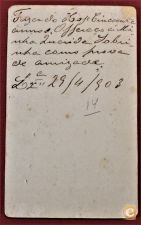 Fazendo Hoje Cincoenta
annos, Offereço á Mi
nha Querida Sobri
nha como prova
de amizade
Lxª 29/4/903
14